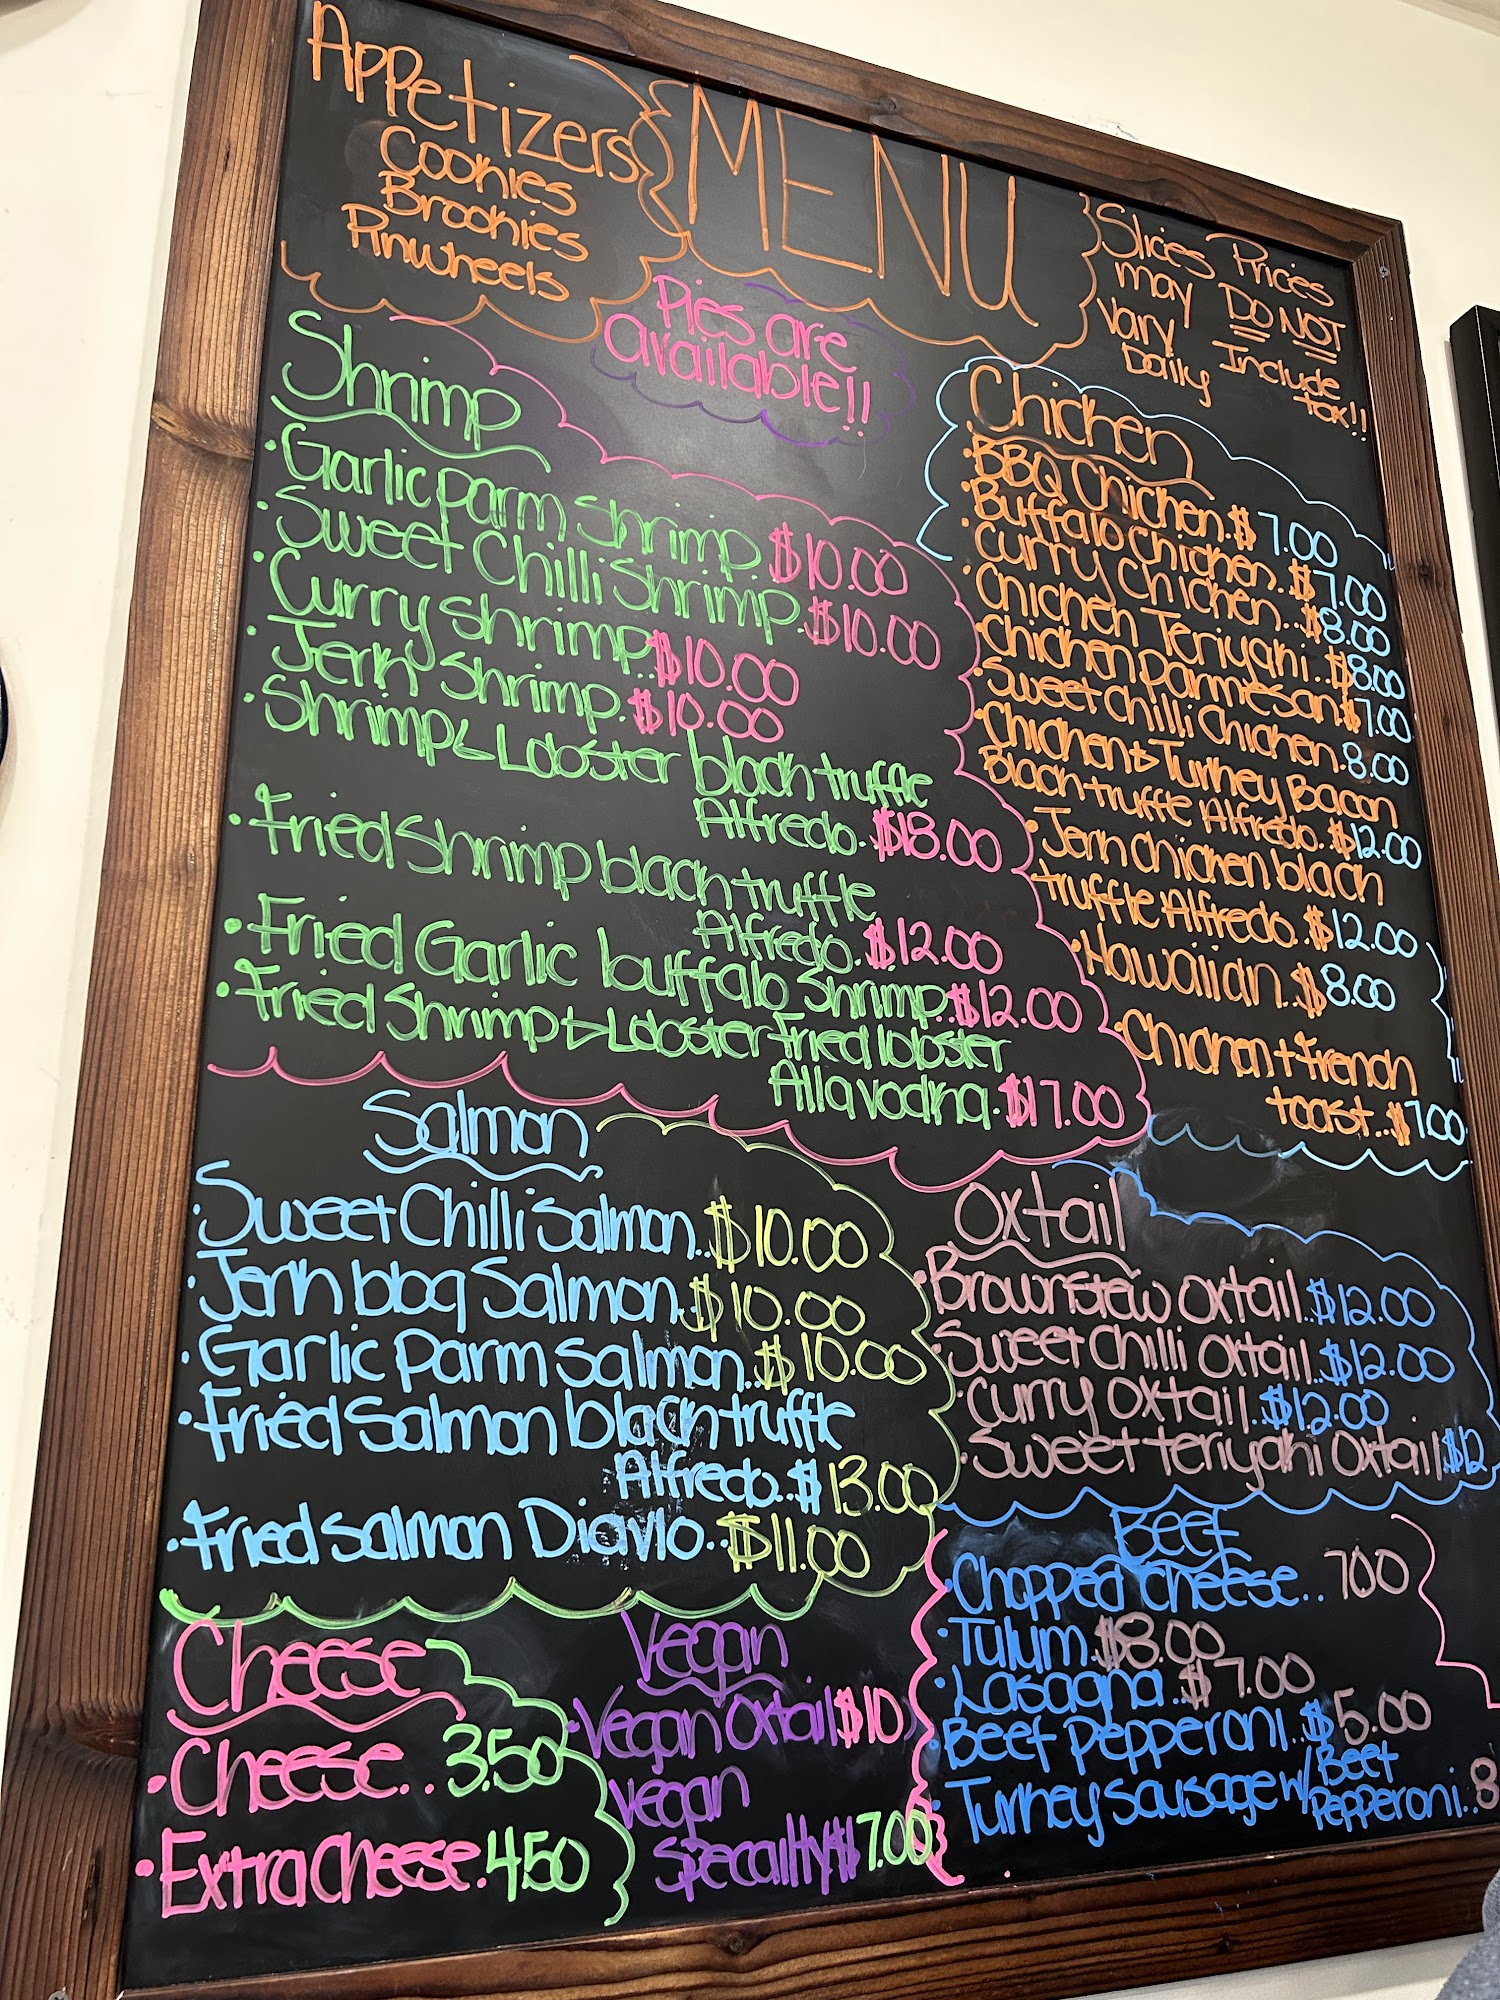 Appetizers
Cookies
Brookies
Pinwheels
MENU
Slices
may
Vary
Daily
Prices
DO NOT
Include
tax!!
Pies are
available!!
Shrimp
• Garlic parm Shrimp $10.00
• Sweet Chilli Shrimp. $10.00
• Curry shrimp..$10.00
• Jerk Shrimp. $10.00
• Shrimp & Lobster black truffle
Alfredo. $18.00
• Fried Shrimp black truffle
Alfredo. $12.00
• Fried Garlic buffalo Shrimp..$12.00
• Fried Shrimp & Lobster Fried lobster
Alla vodka. $17.00
Chicken
• BBQ Chicken. $7.00
• Buffalo chicken.. $7.00
• Curry Chicken... $8.00
• Chicken Teriyaki.. $8.00
• Chicken parmesan $7.00
• Sweet Chilli Chicken. 8.00
• Chicken & Turkey Bacon
Black truffle Alfredo. $12.00
• Jerk Chicken black
truffle Alfredo..$12.00
• Hawaiian..$8.00
• Chicken + French
toast..$7.00
Salmon
• Sweet Chilli Salmon..$10.00
• Jerk bbq Salmon..$10.00
• Garlic Parm Salmon..$10.00
• Fried Salmon black truffle
Alfredo..$13.00
• Fried salmon Diavlo..$11.00
Oxtail
• Brownstew oxtail..$12.00
• Sweet Chilli oxtail..$12.00
• Curry oxtail..$12.00
• Sweet teriyaki oxtail $12
Beef
• Chopped cheese.. 700
• Tulum.$8.00
• Lasagna..$7.00
• Beef pepperoni..$5.00
• Turkey sausage w/ Beef
Pepperoni..8
Cheese
• Cheese.. 3.50
• Extra cheese. 450
Vegan
• Vegan Oxtail $10
• Vegan
Specailty $7.00